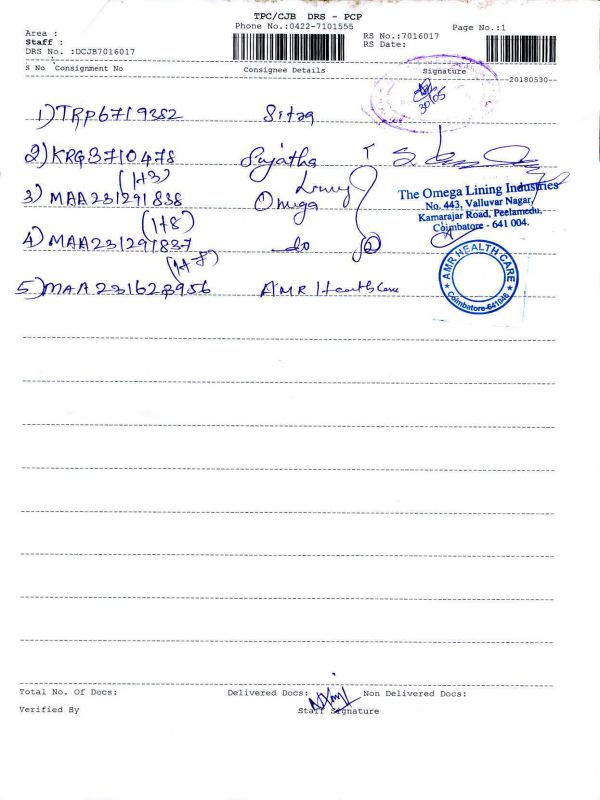 TPC/CJB DRS - PCP
Phone No.:0422-7101555
Page No.:1
Area :
Staff :
DRS No. :DCJB7016017
RS No.:7016017
RS Date:
S No Consignment No Consignee Details Signature
20180530
30/05
1) TRP6719382 Sitra
2) KRG3710478 Sujatha
(1+3)
3) MAA231291838 Omega Lining
(1+8)
4) MAA231291837 do
5) MAA231623956 AMR Healthcare
The Omega Lining Industries
No. 443, Valluvar Nagar,
Kamarajar Road, Peelamedu,
Coimbatore - 641 004.
AMR HEALTH CARE
Coimbatore-641048
Total No. Of Docs: Delivered Docs: Non Delivered Docs:
Verified By Staff Signature